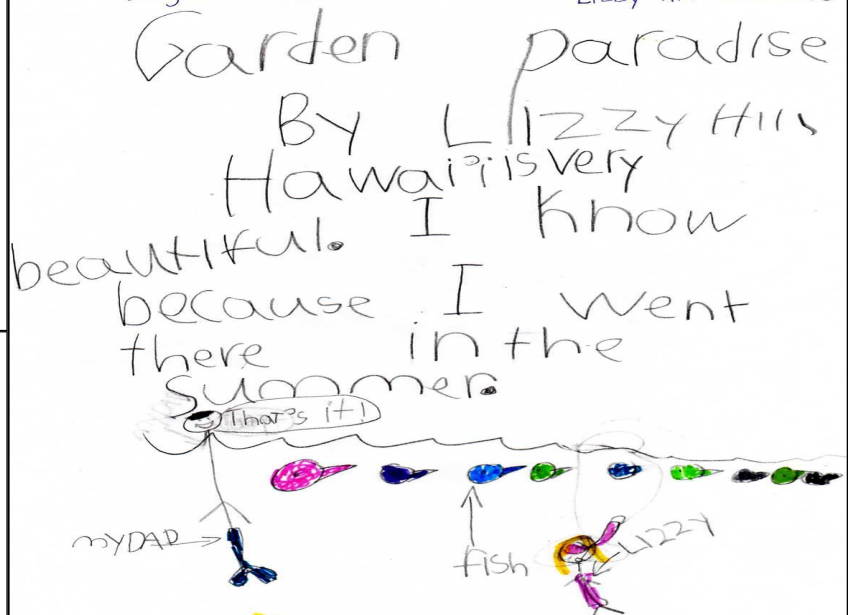 Garden paradise
By Lizzy Hills
Hawai?i is very
beautiful. I know
because I went
there in the
summer.
That's it!
MY DAD
fish
LIZZY